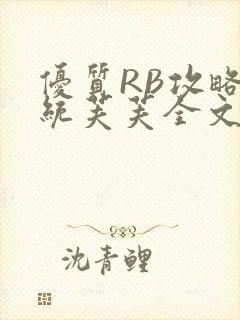 優質RB攻略
統芙芙全文
沈青鲤